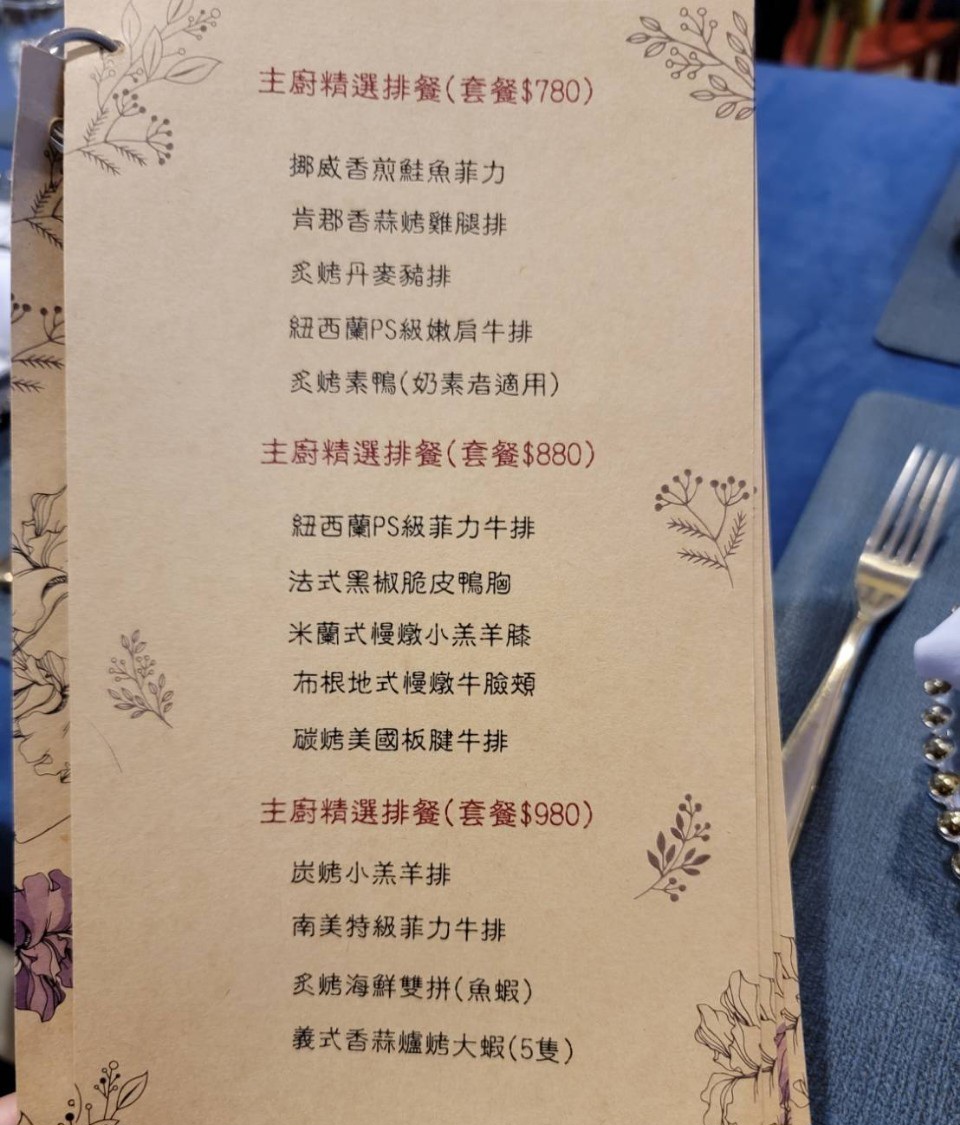 主廚精選排餐(套餐$780)
挪威香煎鮭魚菲力
肯郡香蒜烤雞腿排
炙烤丹麥豬排
紐西蘭PS級嫩肩牛排
炙烤素鴨(奶素者適用)
主廚精選排餐(套餐$880)
紐西蘭PS級菲力牛排
法式黑椒脆皮鴨胸
米蘭式慢燉小羔羊膝
布根地式慢燉牛臉頰
碳烤美國板腱牛排
主廚精選排餐(套餐$980)
炭烤小羔羊排
南美特級菲力牛排
炙烤海鮮雙拼(魚蝦)
義式香蒜爐烤大蝦(5隻)